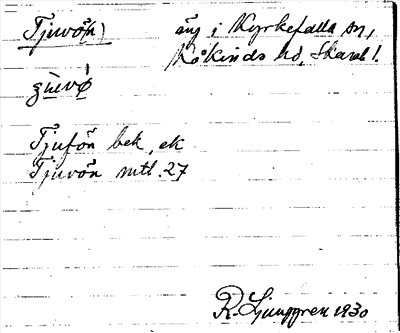 Tjuvön) äng i Kyrkefalla sn,
Kåkinds hd, Skarab l.
Tjufön bek, ek
Tjuvön mtl. 27
R. Ljunggren 1930